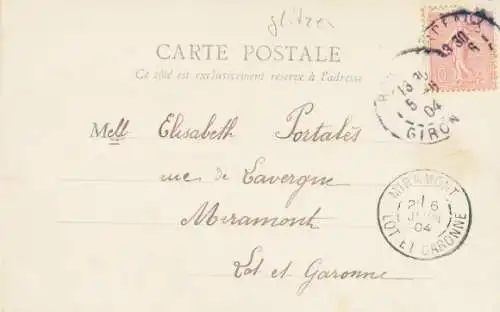 glitzer
CARTE POSTALE
Ce côté est exclusivement réservé à l'adresse
Mell Elisabeth Portalès
rue de Lavergne
Miramont
Lot et Garonne
13 30
5 -6
04
GIRON
9 30
6
10
MIRAMONT
04
LOT ET GARONNE